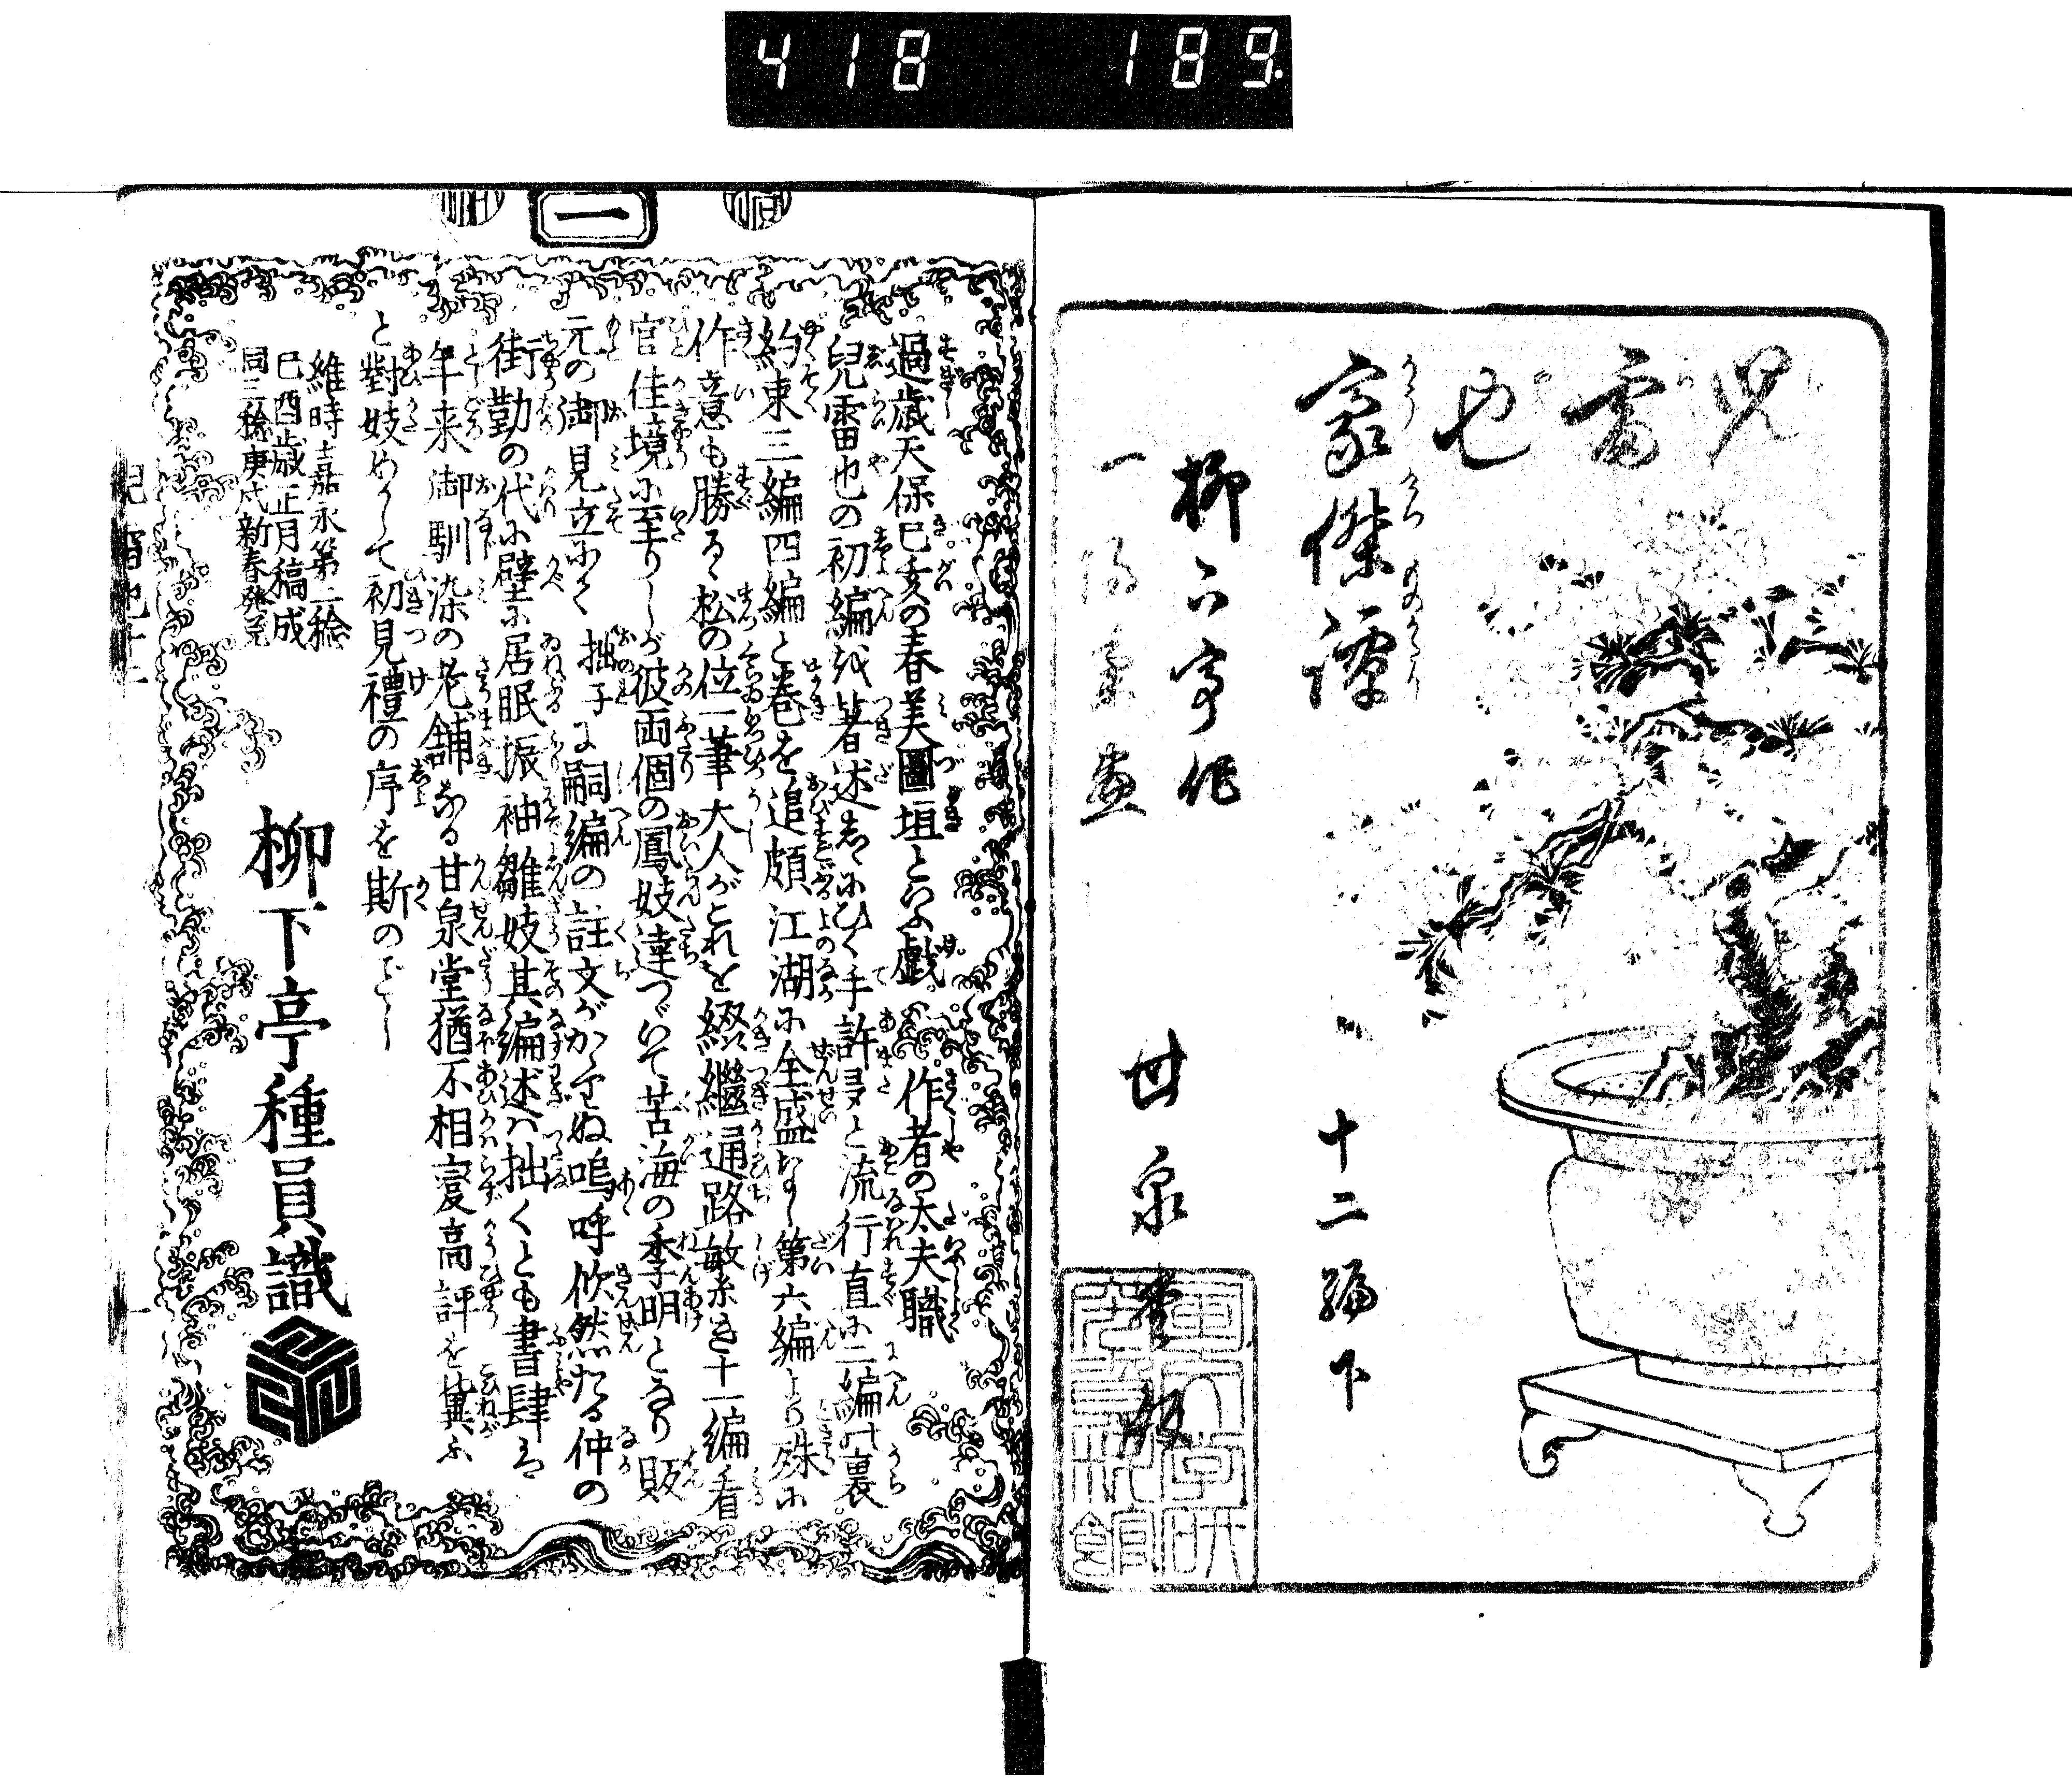 418 189
兒雷也
豪傑譚
十二編下
柳下亭作
一陽斎画
甘泉堂版
東京大学研究資料館
一
過歳天保己亥の春美圖垣といふ戯作者の太夫職
兒雷也の初編を著述しに手許多と流行直に二編の裏
約束三編四編と巻を追頗江湖に全盛なし第六編より殊に
作意も勝る松の位一筆大人がこれを綴繼通路繁き十一編看
官佳境に至りしが彼両個の鳳妓達つゞいて苦海の季明となり販
元の御見立にて拙子に嗣編の註文がかゝりぬ嗚呼欣然たる仲の
街勤の代に壁に居眠振袖雛妓其編述は拙くとも書肆は
年来御馴染の老舗なる甘泉堂猶不相變高評を冀ふ
と對妓めかして初見禮の序を斯のごとし
維時嘉永第二稔
己酉歳正月稿成
同三稔庚戌新春発兌
柳下亭種員識